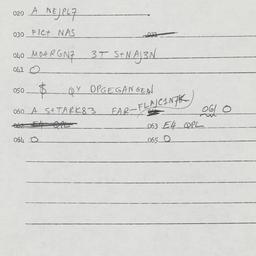 020 A NEJPL7
030 FICT NAS
040 MO+RGN7 3T S+NAJ3N
041 O
050 $ QY OPGEGANGEN
060 A S+TARK83 FAR-FLAJC1N7K 061 O
063 E4 QPL
064 O 065 O